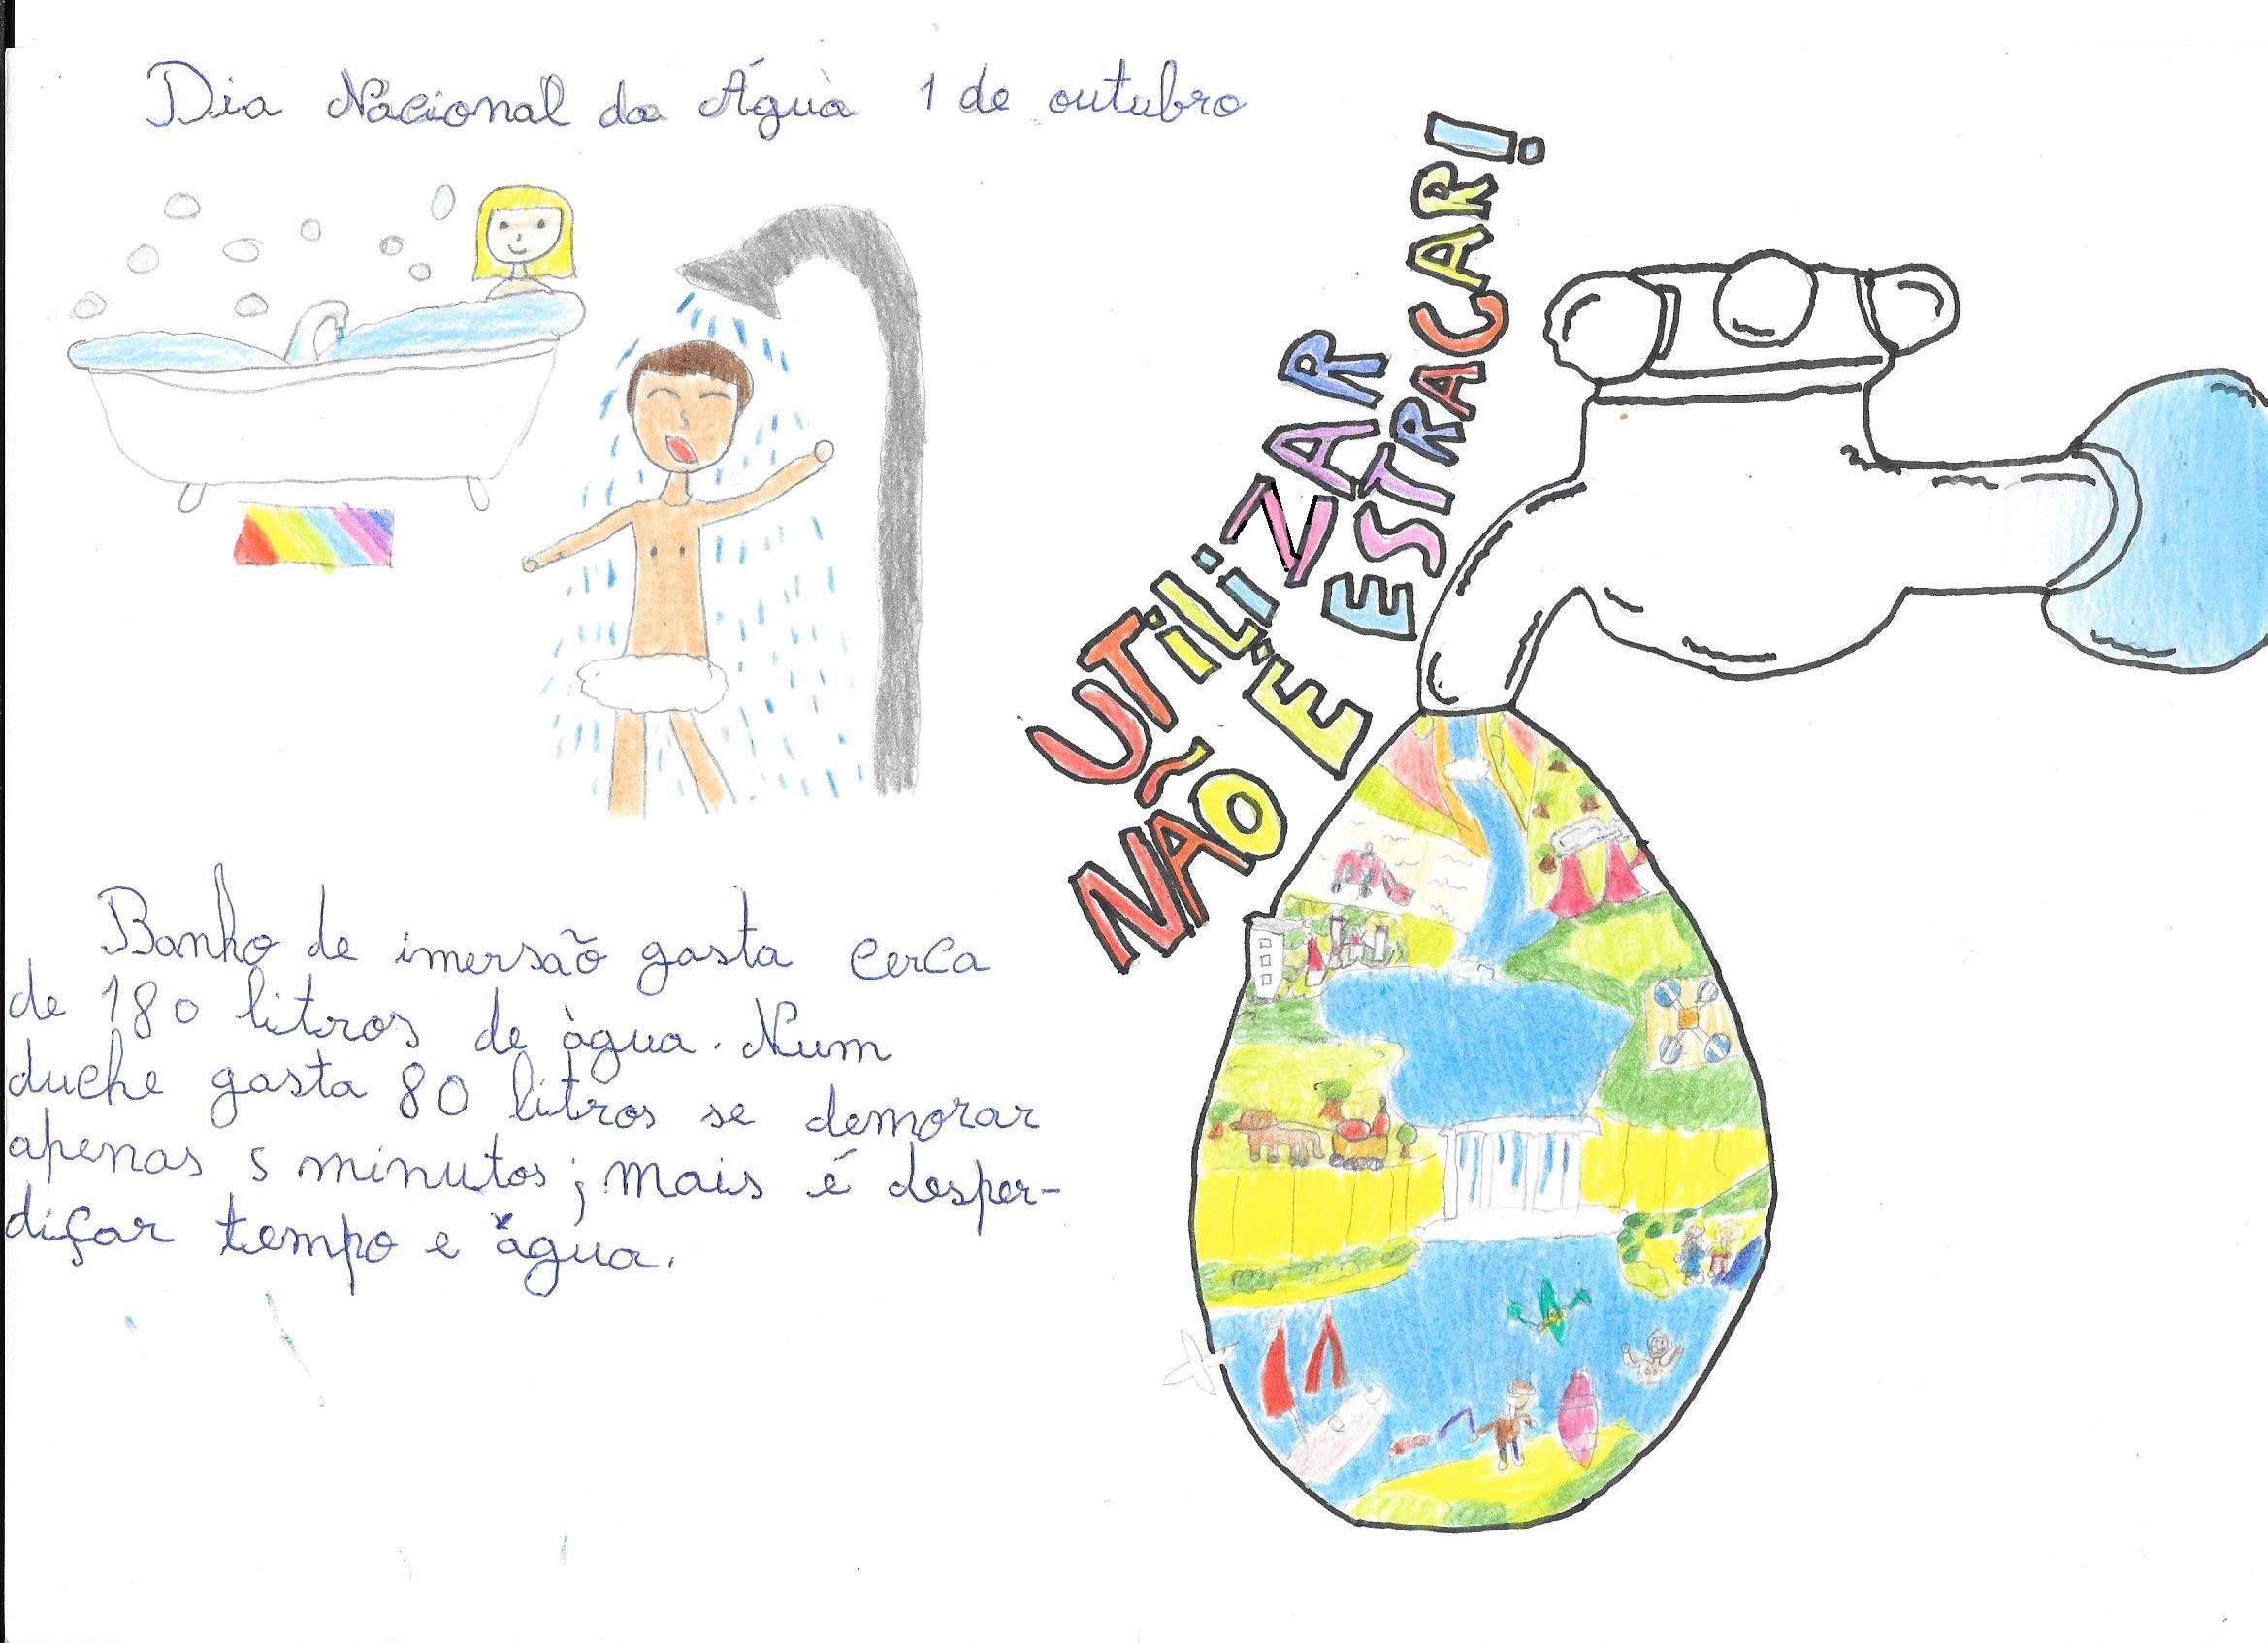 Dia Nacional da Água 1 de outubro
UTiLiZAR
NÃO É ESTRAGAR!
Banho de imersão gasta cerca
de 180 litros de àgua. Num
duche gasta 80 litros se demorar
apenas 5 minutos; mais é desper-
diçar tempo e água.